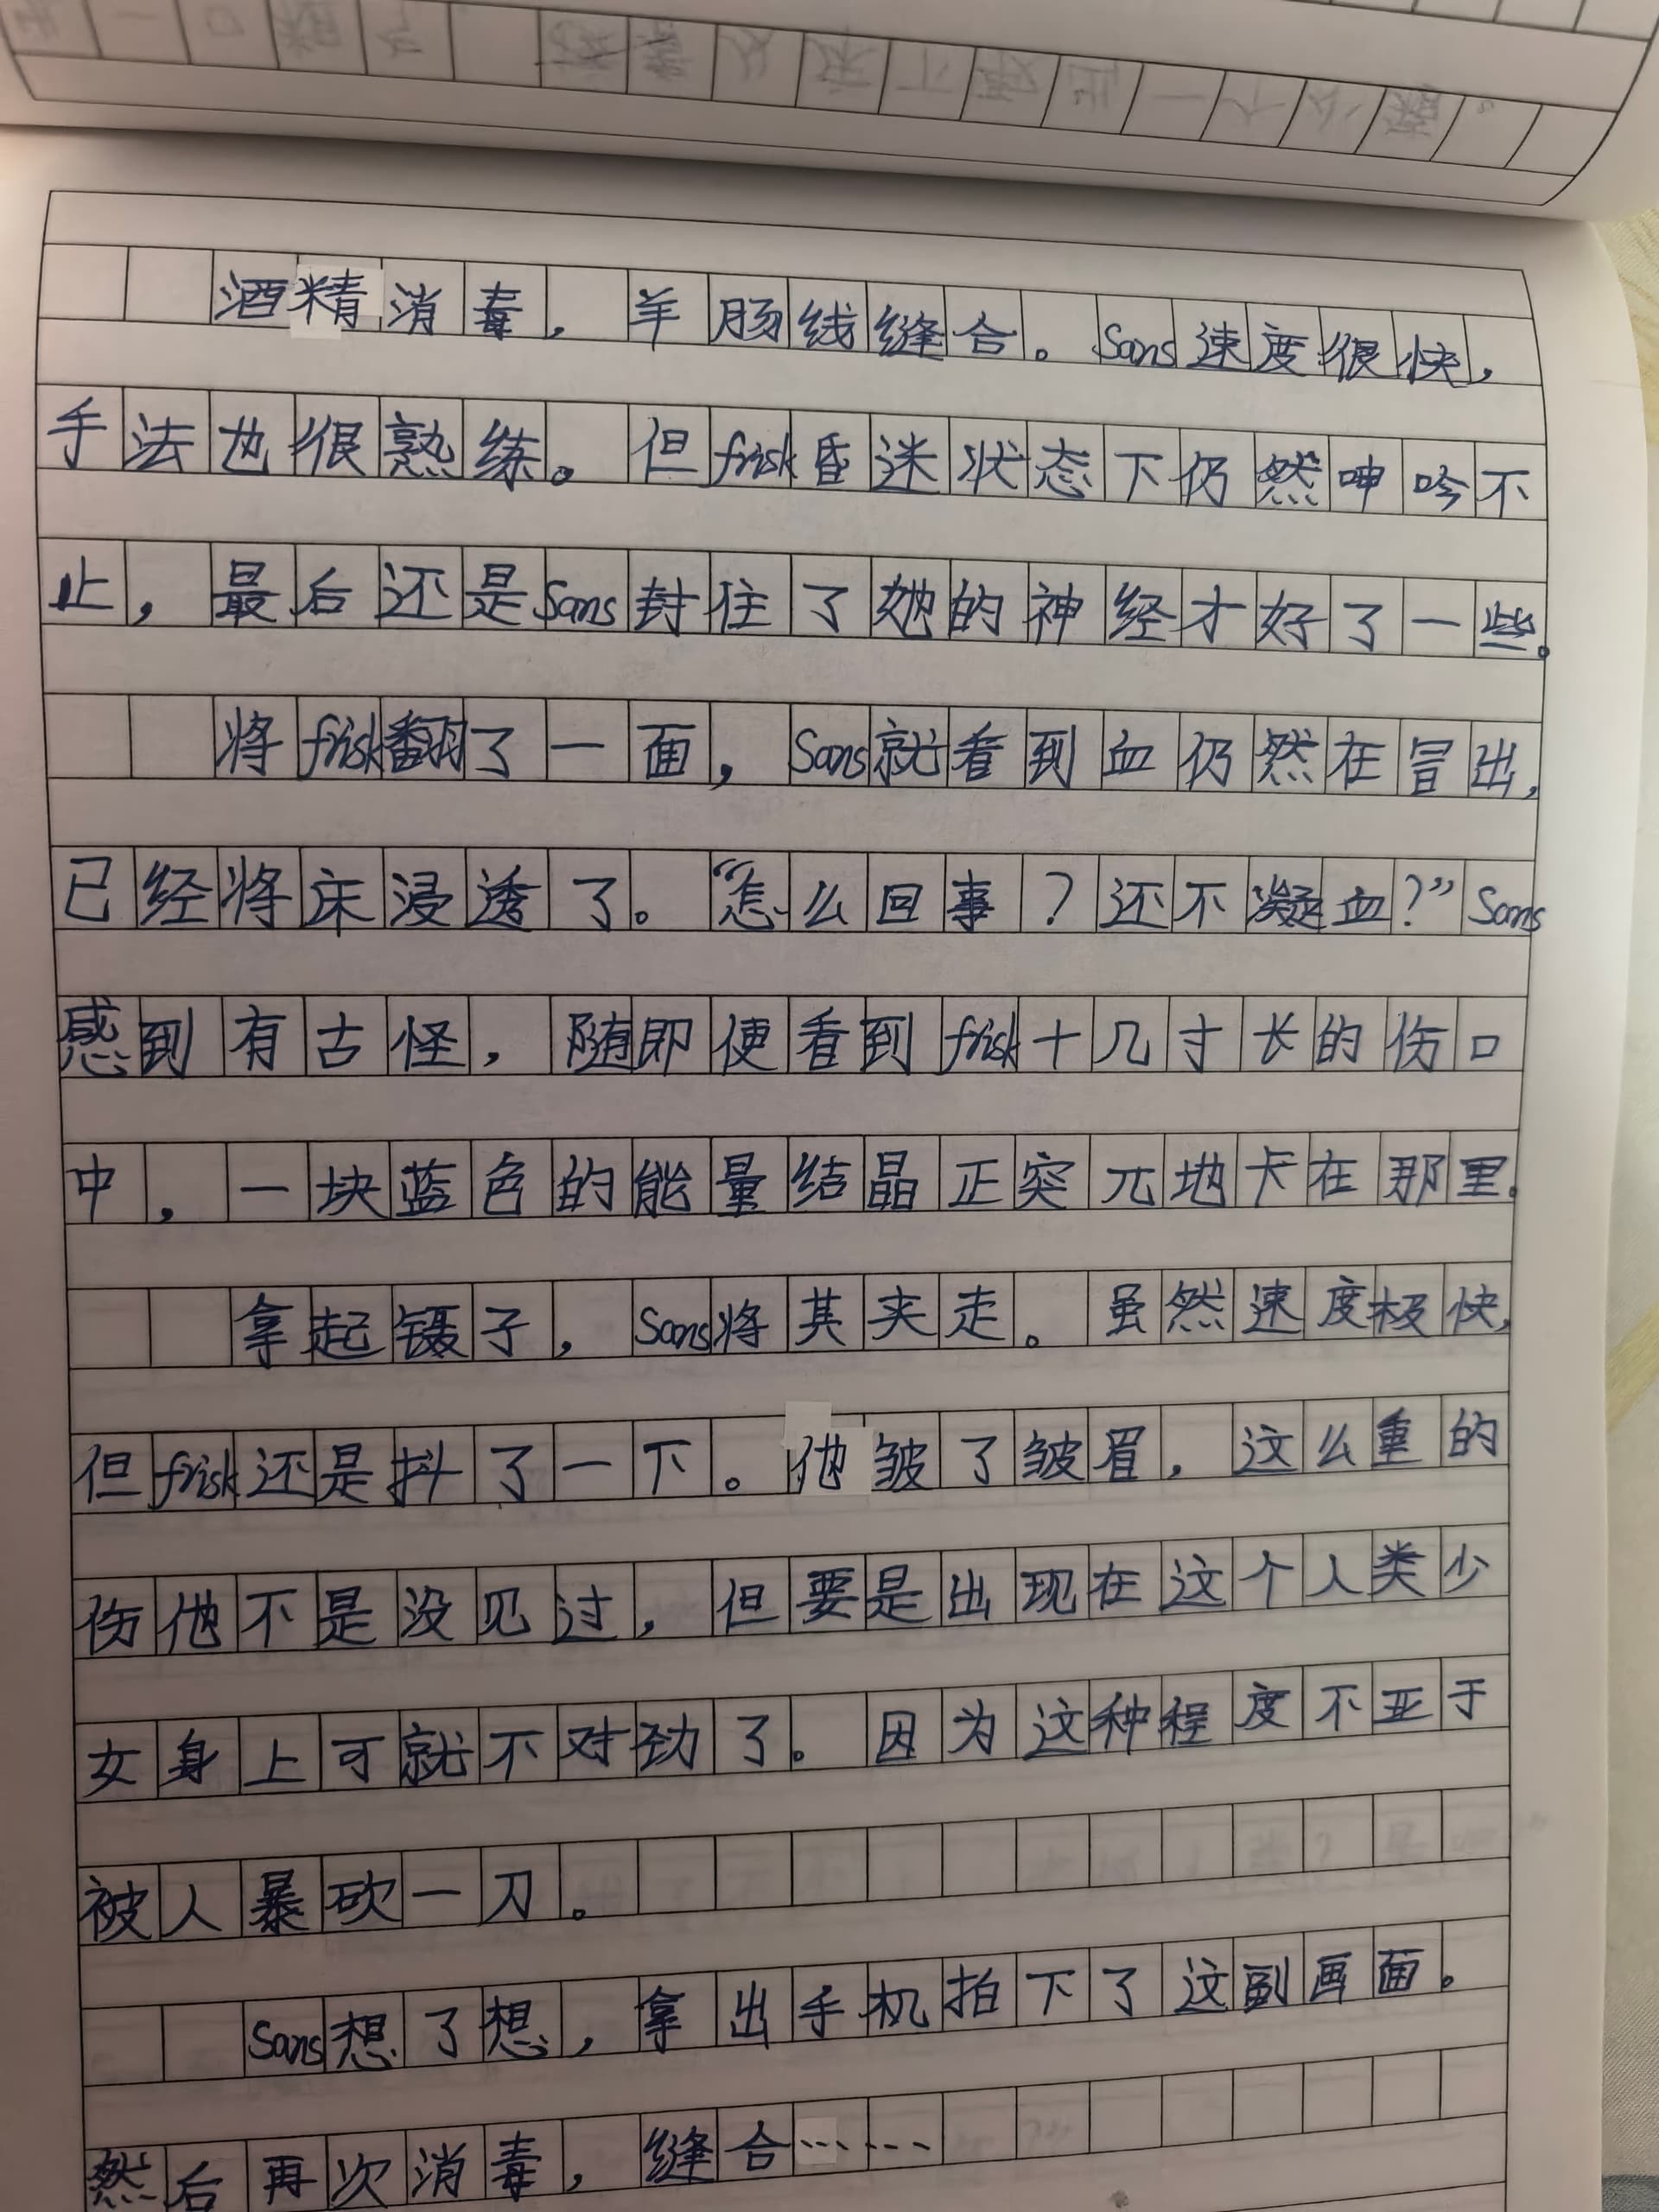 酒精消毒，羊肠线缝合。Sans速度很快，
手法也很熟练。但frisk昏迷状态下仍然呻吟不
止，最后还是Sans封住了她的神经才好了一些。
将frisk翻了一面，Sans就看到血仍然在冒出，
已经将床浸透了。“怎么回事？还不凝血？”Sans
感到有古怪，随即便看到frisk十几寸长的伤口
中，一块蓝色的能量结晶正突兀地卡在那里。
拿起镊子，Sans将其夹走。虽然速度极快，
但frisk还是抖了一下。他皱了皱眉，这么重的
伤他不是没见过，但要是出现在这个人类少
女身上可就不对劲了。因为这种程度不亚于
被人暴砍一刀。
Sans想了想，拿出手机拍下了这副画面。
然后再次消毒，缝合……